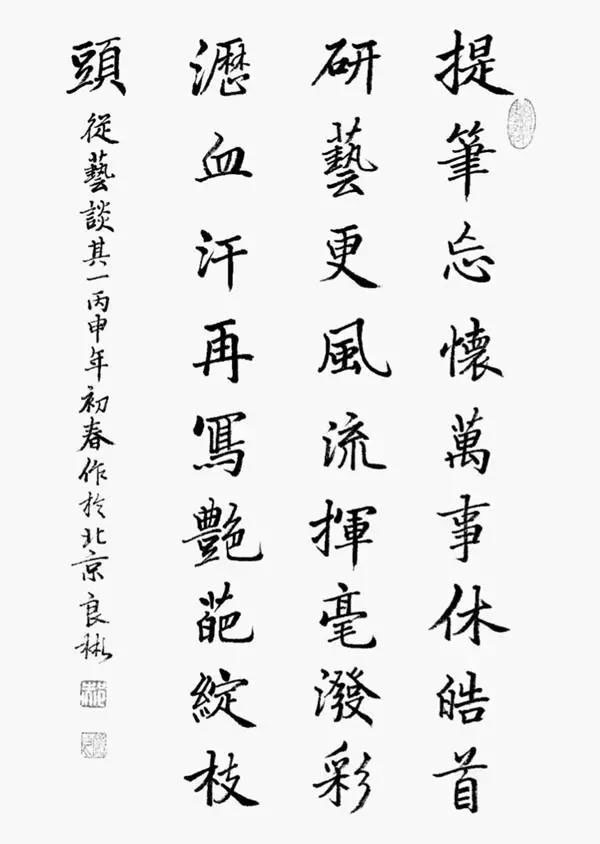 提筆忘懷萬事休皓首
研藝更風流揮毫潑彩
瀝血汗再寫艷葩綻枝
頭
從藝談其一丙申年初春作於北京良彬